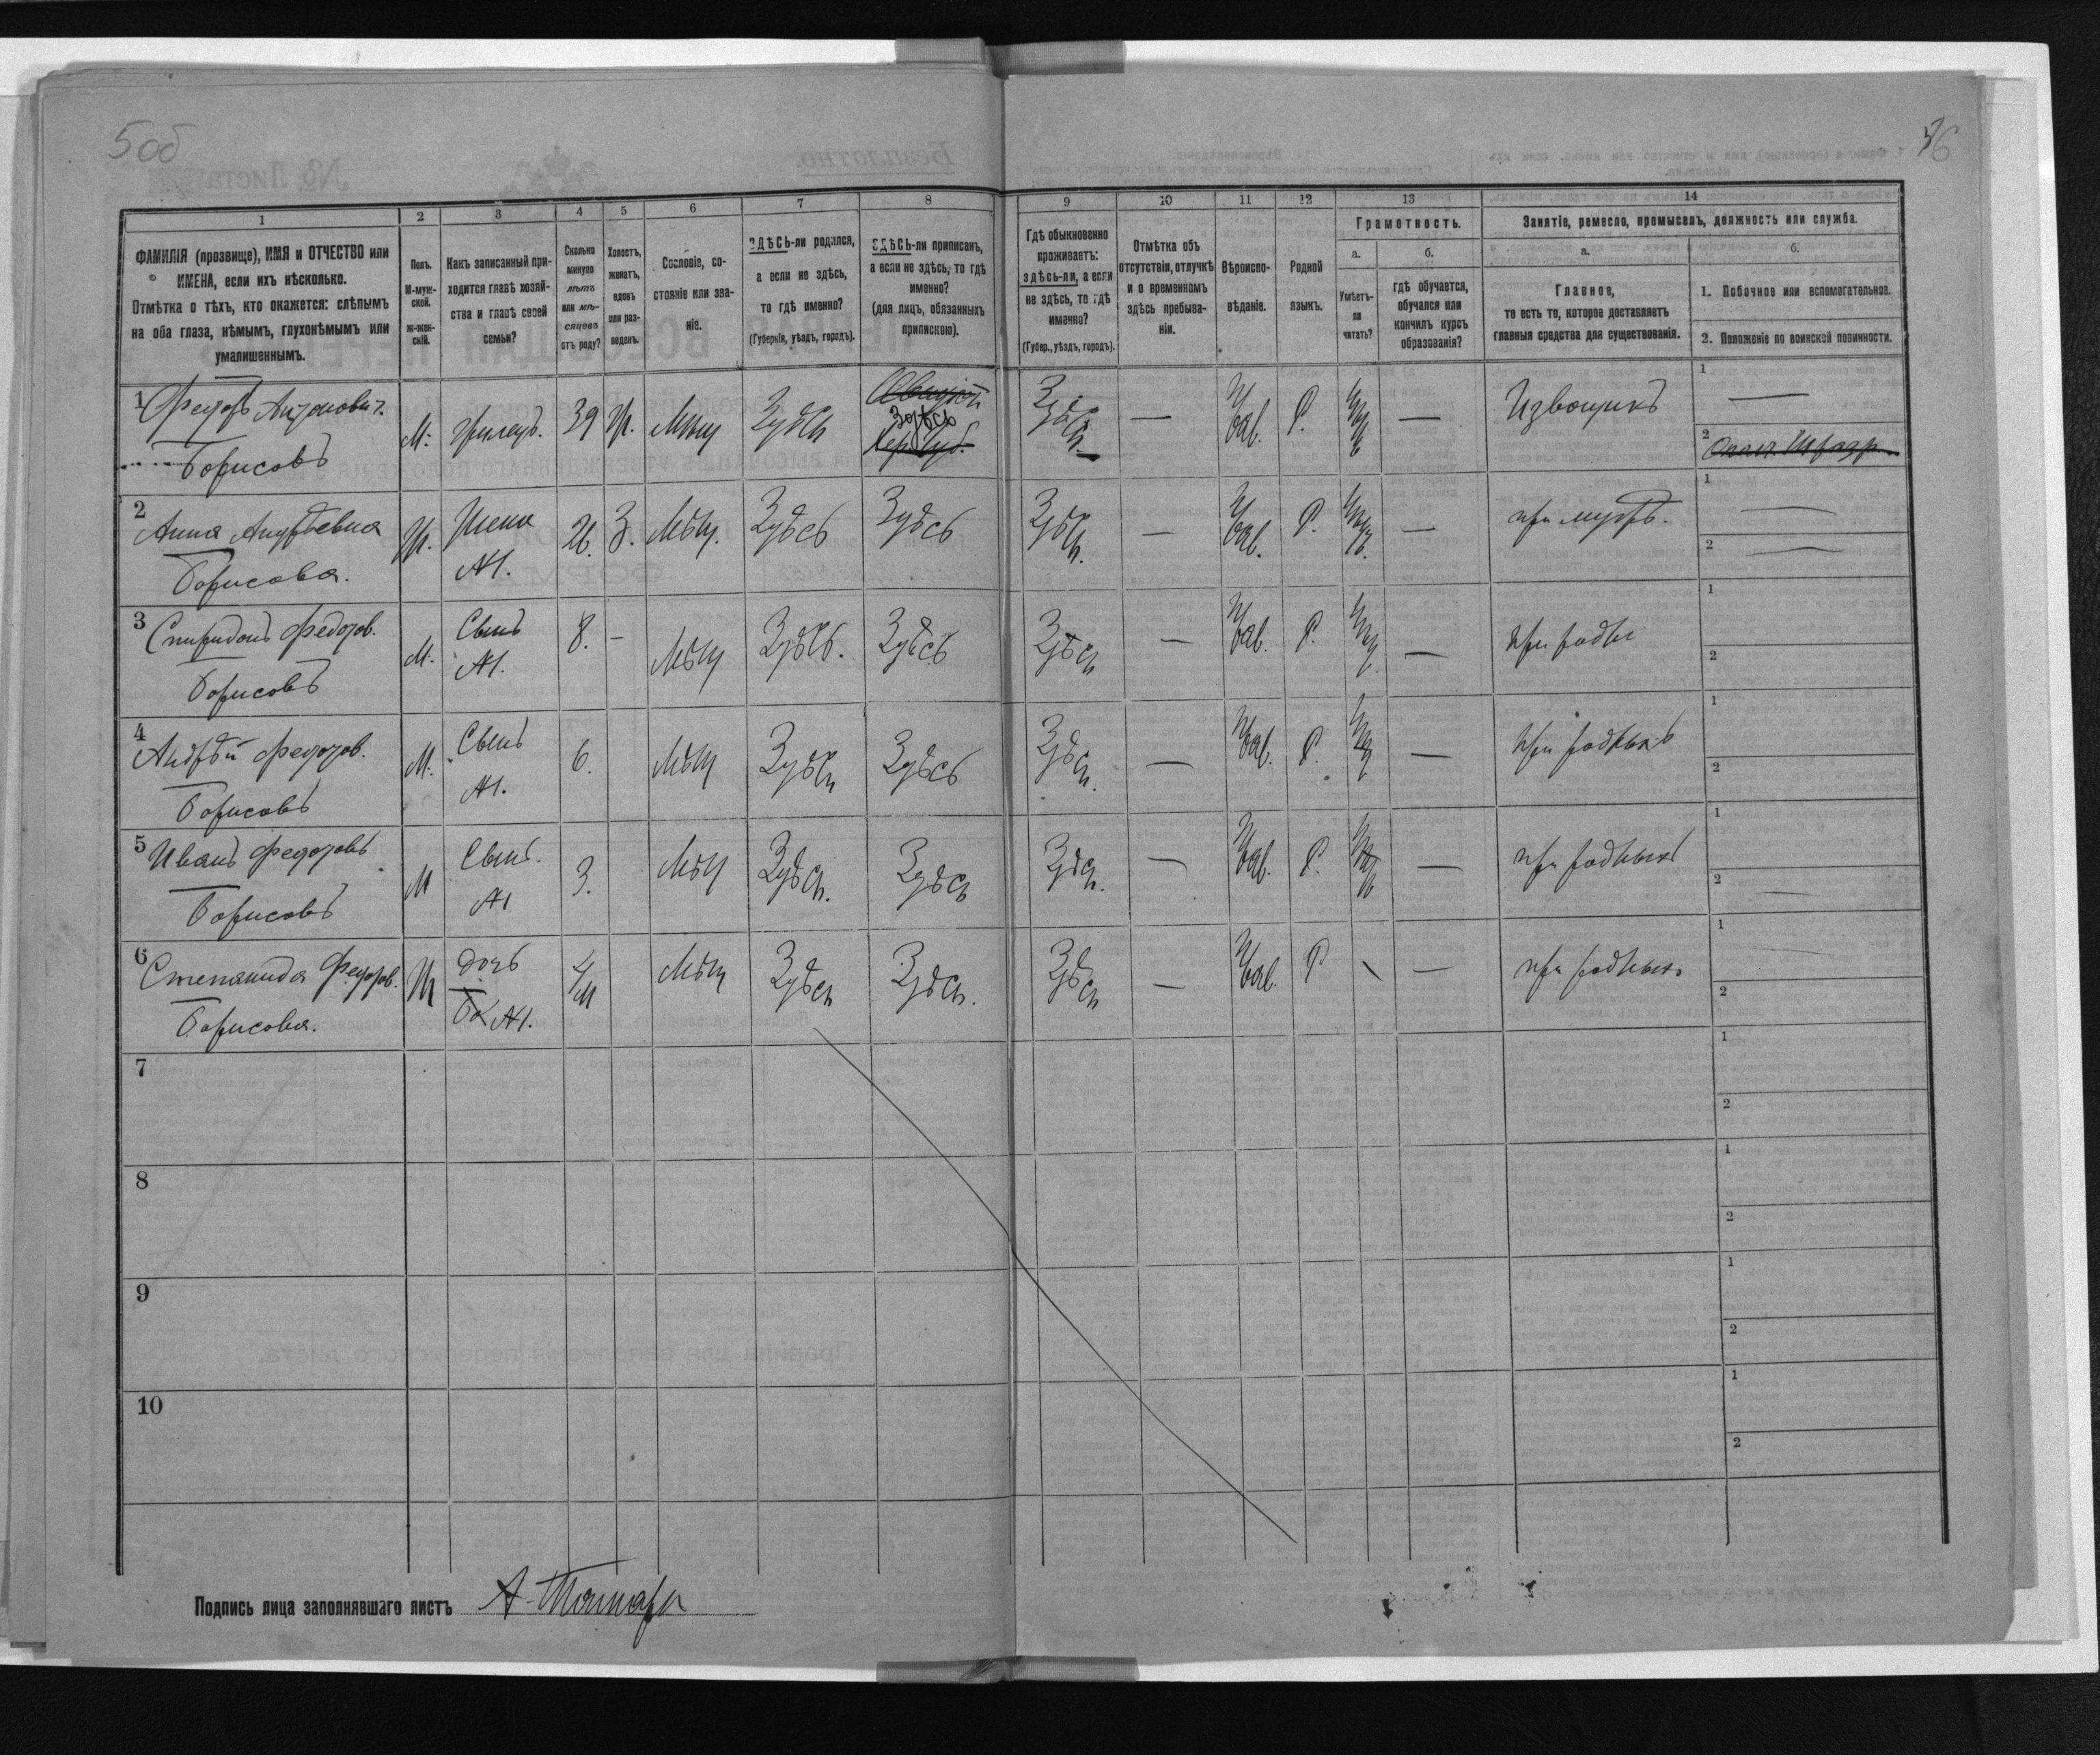 5 об
6
1
2
3
4
5
6
7
8
9
10
11
12
13
14
ФАМИЛІЯ (прозвище), ИМЯ и ОТЧЕСТВО или
ИМЕНА, если ихъ нѣсколько.
Отмѣтка о тѣхъ, кто окажется: слѣпымъ
на оба глаза, нѣмымъ, глухонѣмымъ или
умалишеннымъ.
Полъ.
М-муж-
ской.
Ж-жен-
скій.
Какъ записанный при-
ходится главѣ хозяй-
ства и главѣ своей
семьи?
Сколько
минуло
лѣтъ
или мѣ-
сяцевъ
отъ роду?
Холостъ,
женатъ,
вдовъ
или раз-
веденъ.
Сословіе, со-
стояніе или зва-
ніе.
ЗДѢСЬ-ли родился,
а если не здѣсь,
то гдѣ именно?
(Губернія, уѣздъ, городъ).
ЗДѢСЬ-ли приписанъ,
а если не здѣсь, то гдѣ
именно?
(для лицъ, обязанныхъ
припискою).
Гдѣ обыкновенно
проживаетъ:
здѣсь-ли, а если
не здѣсь, то гдѣ
именно?
(Губер., уѣздъ, городъ).
Отмѣтка объ
отсутствіи, отлучкѣ
и о временномъ
здѣсь пребыва-
ніи.
Вѣроиспо-
вѣданіе.
Родной
языкъ.
Грамотность.
а.
Умѣетъ-
ли
читать?
б.
гдѣ обучается,
обучался или
кончилъ курсъ
образованія?
Занятіе, ремесло, промыселъ, должность или служба.
а.
Главное,
то есть то, которое доставляетъ
главныя средства для существованія.
б.
1. Побочное или вспомогательное.
2. Положеніе по воинской повинности.
1 Федоръ Антонович.
Борисовъ
М. 39 Здѣсь
Здѣсь
Хер. Губ.
Здѣсь — Р. — Извощикъ
1 —
2
2 Анна Андрѣевна
Борисова.
Жена
№1.
26. З. Мѣщ. Здѣсь Здѣсь Здѣсь. — Р. — при мужѣ.
1 —
2 —
3 Спиридонъ Федоров.
Борисовъ
М. Сынъ
№1.
8. — Мѣщ Здѣсь. Здѣсь Здѣсь — Р. —
1
2
4 Андрѣй Федоров.
Борисовъ
М. Сынъ
№1.
6. Мѣщ Здѣсь Здѣсь Здѣсь. — Р. — при родныхъ
1
2
5 Иванъ Федоровъ
Борисовъ
М Сынъ.
№1
3. Мѣщ Здѣсь. Здѣсь Здѣсь. — Р. — при родныхъ
1
2 —
6 Степанида Федоров.
Борисова.
дочь
№1.
Мѣщ Здѣсь Здѣсь. Здѣсь — Р — при родныхъ
1 —
2
7
1
2
8
1
2
9
1
2
10
1
2
Подпись лица заполнявшаго листъ